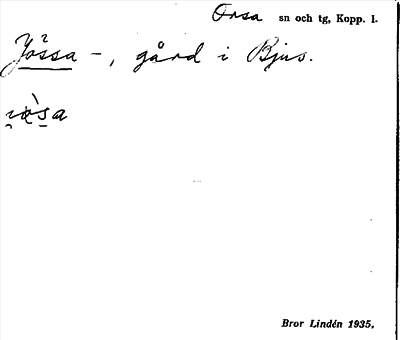 Orsa sn och tg, Kopp. l.
Jössa –, gård i Bjus.
Bror Lindén 1935.